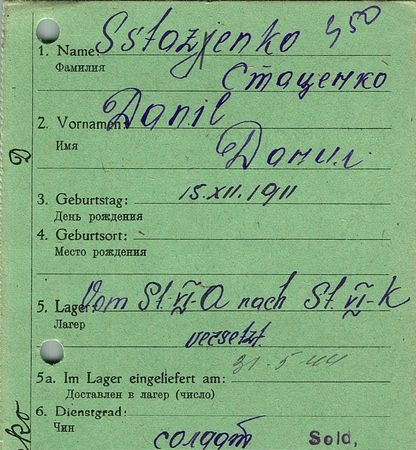 1. Name: Sstazjenko 450
Фамилия
Стаценко
2. Vornamen: Danil
Имя
Данил
3. Geburtstag: 15.XII.1911
День рождения
4. Geburtsort:
Место рождения
5. Lager: Vom St. VI-A nach St. VI-K
Лагер
versetzt.
31.5.44
5a. Im Lager eingeliefert am:
Доставлен в лагер (число)
6. Dienstgrad:
Чин
солдат Sold.
D
ko